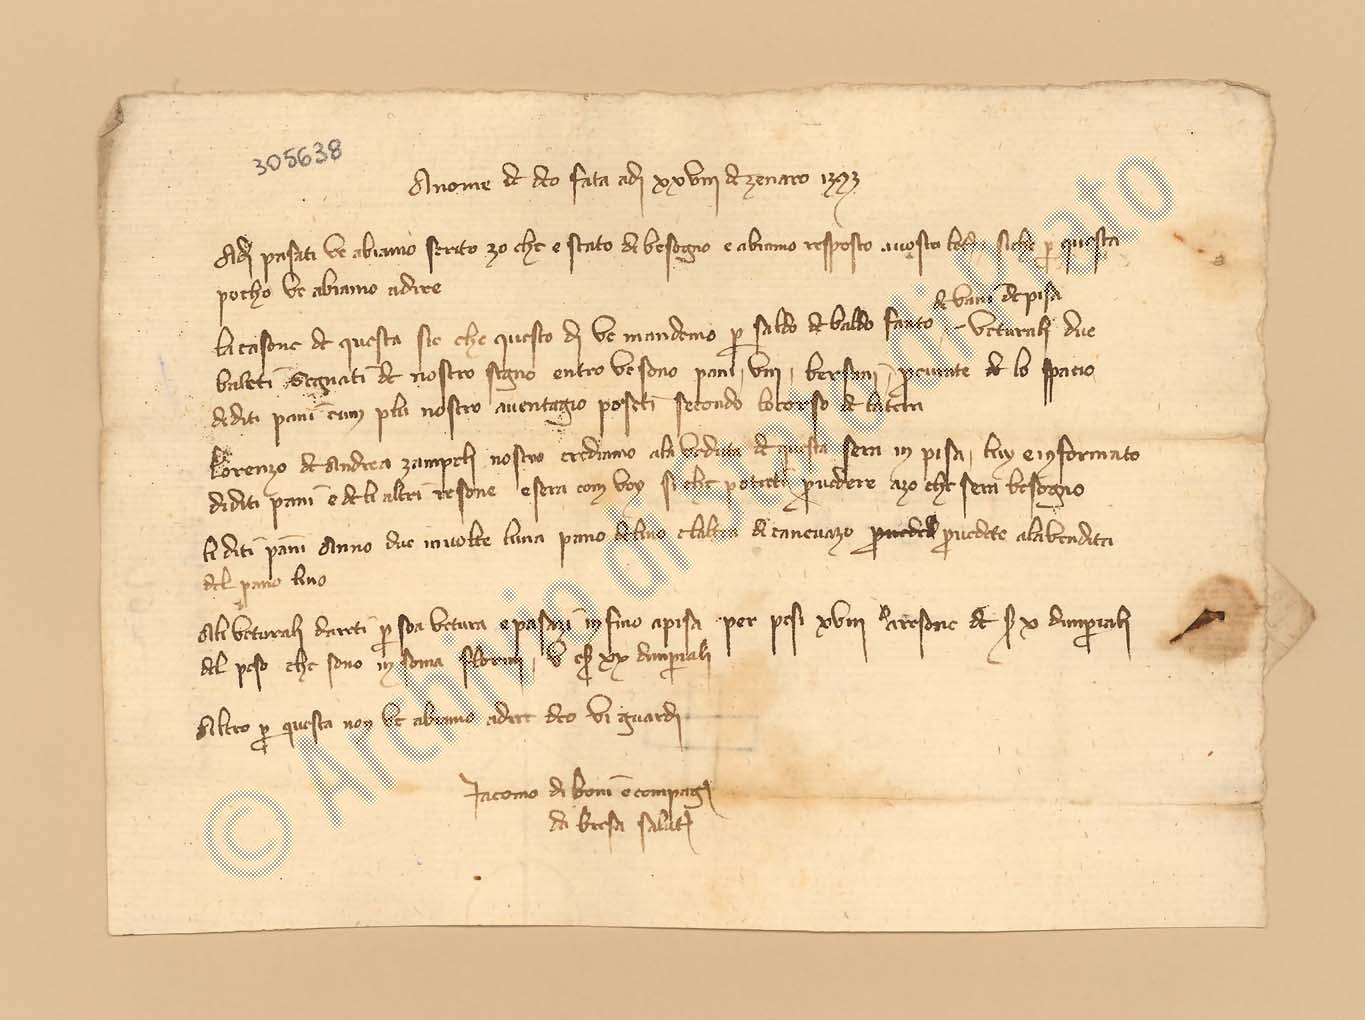 305638
A nome de deo fata adi xxviii de zenaro 1393
Adi pasati ve abiamo scrito zo che e stato de besogno e abiamo resposto a vostra letera siche p questa
pocho ve abiamo a dire
de vani de pisa
la casone de questa sie che questo di ve mandemo p saldo de baldo fanto veturali due
baleti segnati de nostro segno entro ve sono pani viii bersani pcurate de lo spacio
de diti pani cum plu nostro aventagio poseti secondo lo corso de la tera
Lorenzo de Andrea zampeli nostro crediamo ala veduta de questa sera in pisa luy e informato
di diti pani e de le altri resone e sera com voy si che poteti pvedere azo che sera besogno
li diti pani Anno due involie luna pano de lino e laltra di canevazo pvedete ala vendita
del pano lino
Ali veturali dareti p soa vetura e pasazi in fino a pisa per pesi xviii a resone de s x dimpiali
del peso che sono in soma florini v e s xx dimpiali
Altro p questa non ve abiamo a dire deo vi guardi
Jacomo di boni e compagni
da bresa salute
© Archivio di Stato di Prato